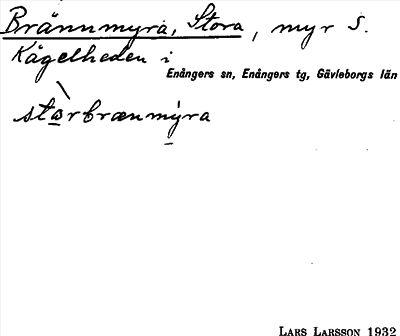 Brännmyra, Stora, myr S.
Kågelheden i
Enångers sn, Enångers tg, Gävleborgs län
stàrbrænmýra
LARS LARSSON 1932